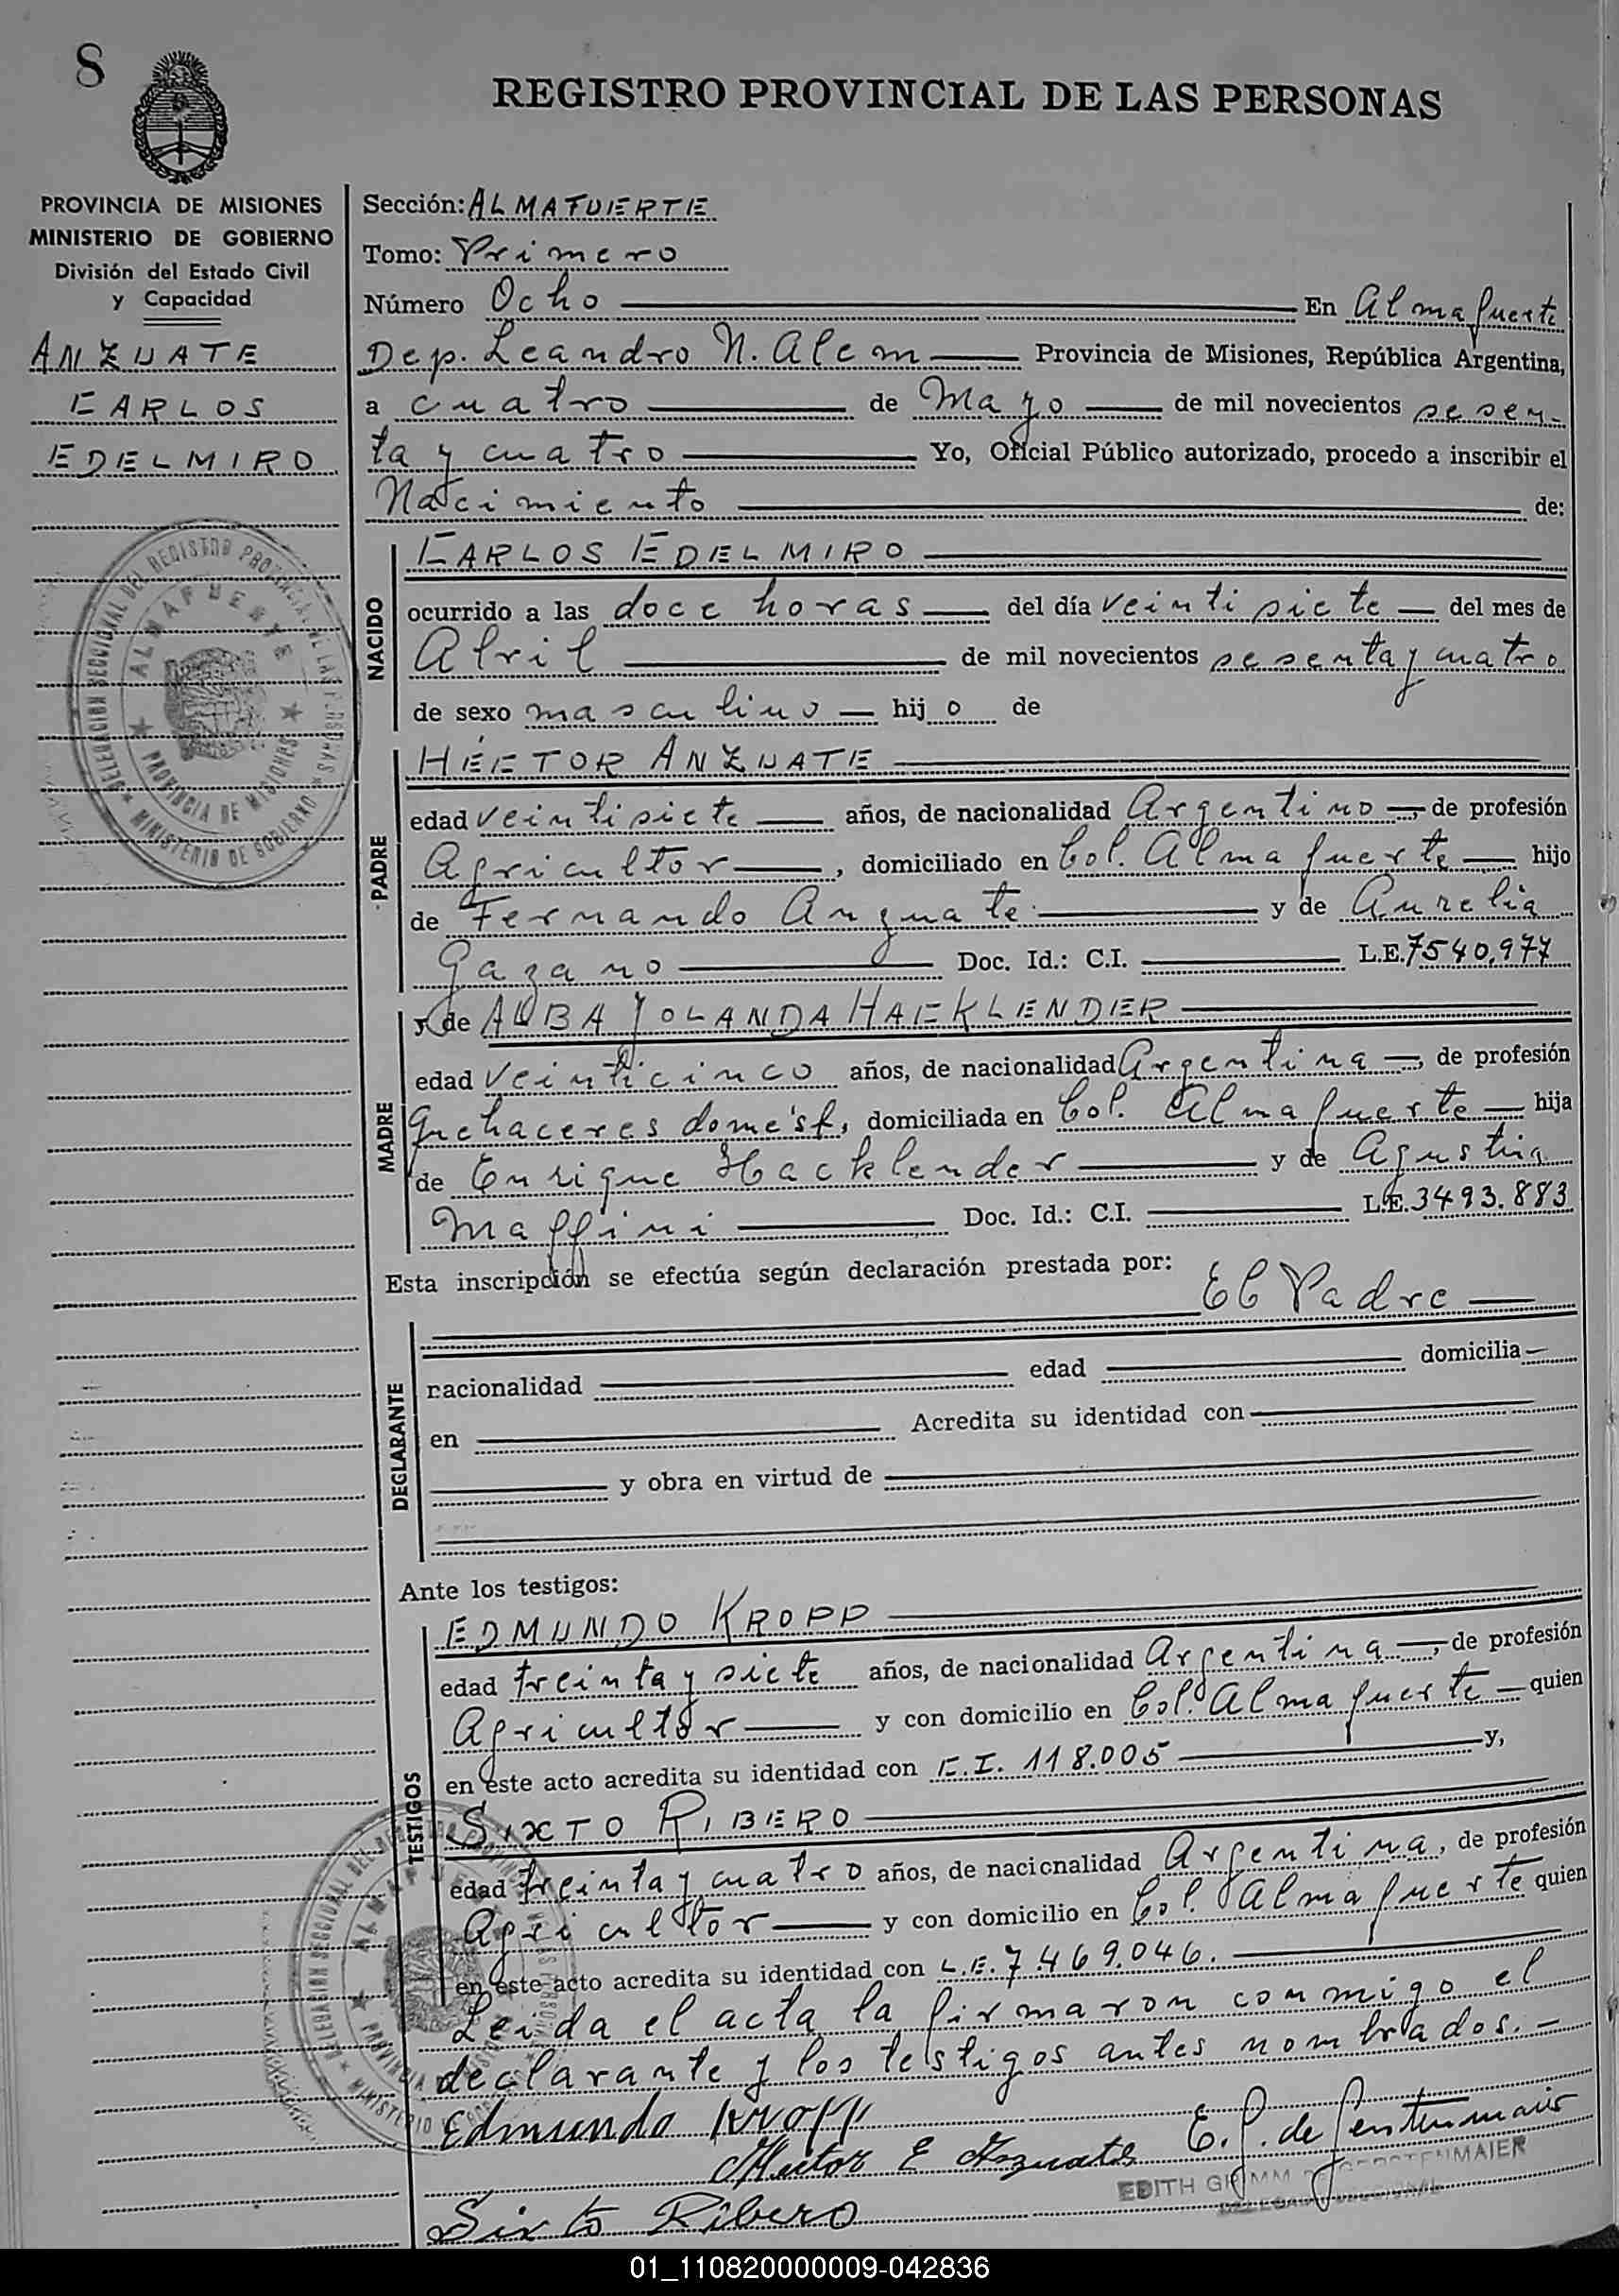 8
REGISTRO PROVINCIAL DE LAS PERSONAS
PROVINCIA DE MISIONES
MINISTERIO DE GOBIERNO
División del Estado Civil
y Capacidad
ANZUATE
CARLOS
EDELMIRO
Sección: ALMAFUERTE
Tomo: Primero
Número Ocho En Almafuerte
Dep. Leandro N. Alem Provincia de Misiones, República Argentina,
a cuatro de Mayo de mil novecientos sesen-
ta y cuatro Yo, Oficial Público autorizado, procedo a inscribir el
Nacimiento de:
NACIDO
CARLOS EDELMIRO
ocurrido a las doce horas del día veintisiete del mes de
Abril de mil novecientos sesenta y cuatro
de sexo masculino hijo de
PADRE
HÉCTOR ANZUATE
edad veintisiete años, de nacionalidad Argentino, de profesión
Agricultor, domiciliado en Col. Almafuerte hijo
de Fernando Anzuate y de Aurelia
Gazano Doc. Id.: C.I. L.E. 7540.977
MADRE
y de ALBA YOLANDA HACKLENDER
edad veinticinco años, de nacionalidad Argentina, de profesión
Quehaceres domést, domiciliada en Col. Almafuerte hija
de Enrique Hacklender y de Agustina
Maffini Doc. Id.: C.I. L.E. 3493.883
Esta inscripción se efectúa según declaración prestada por: El Padre
DECLARANTE
nacionalidad edad domicilia
en Acredita su identidad con
y obra en virtud de
Ante los testigos:
TESTIGOS
EDMUNDO KROPP
edad treinta y siete años, de nacionalidad Argentina, de profesión
Agricultor y con domicilio en Col. Almafuerte quien
en este acto acredita su identidad con C.I. 118.005 y,
SIXTO RIBERO
edad treinta y cuatro años, de nacionalidad Argentina, de profesión
Agricultor y con domicilio en Col. Almafuerte quien
en este acto acredita su identidad con L.E. 7.469.046.
Leída el acta la firmaron conmigo el
declarante y los testigos antes nombrados.-
Edmundo Kropp
Hector E Anzuate E. G. de Gerstenmaier
EDITH GRIMM DE GERSTENMAIER
DELEGADA SECCIONAL
Sixto Ribero
DELEGACION SECCIONAL DEL REGISTRO PROVINCIAL DE LAS PERSONAS
MINISTERIO DE GOBIERNO
ALMAFUERTE
PROVINCIA DE MISIONES
01_110820000009-042836